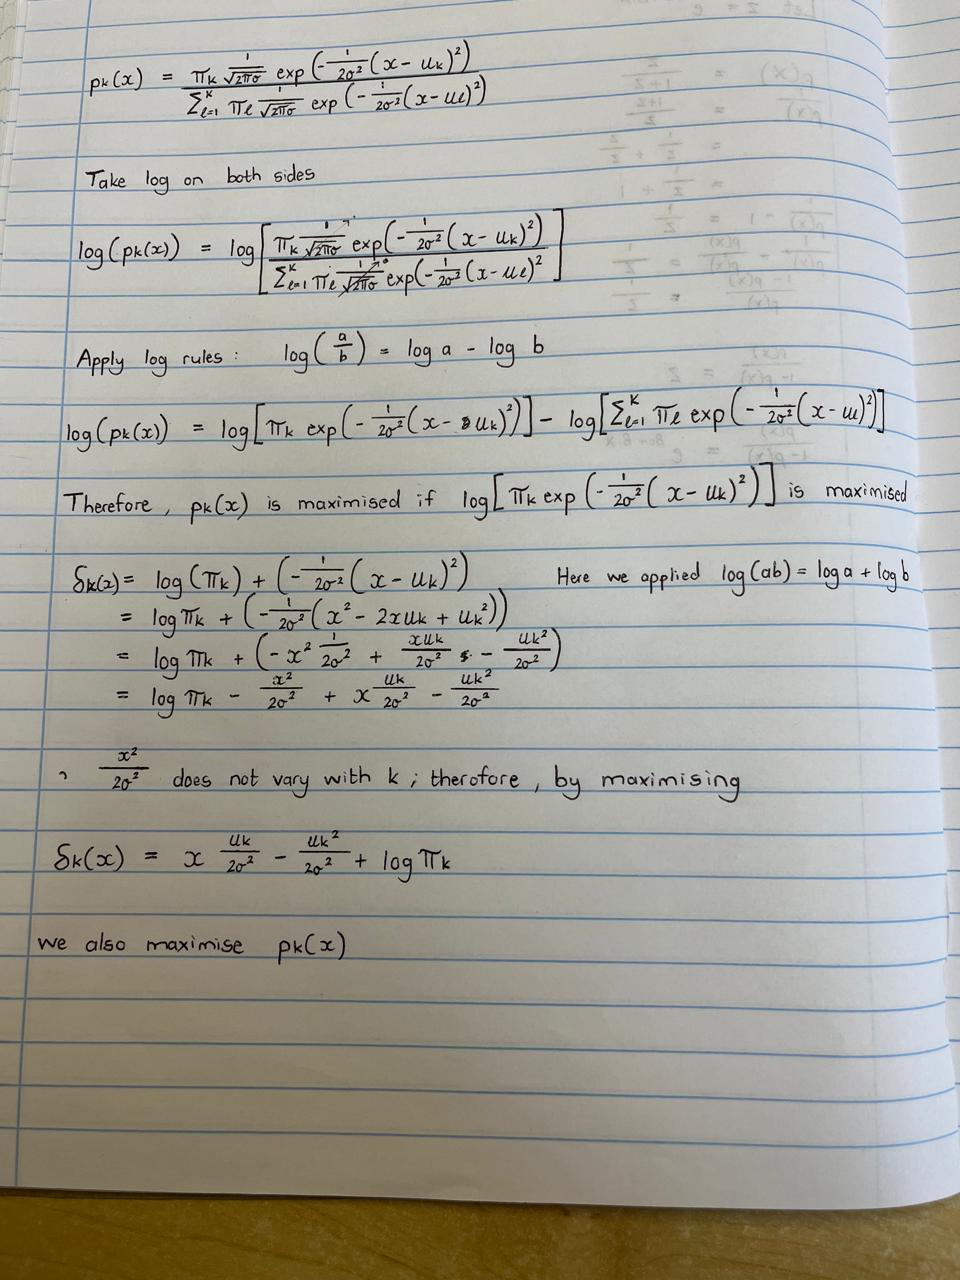 pk(x) = πk 1/√2πσ exp(-1/2σ²(x - uk)²) / Σᴷℓ=1 πℓ 1/√2πσ exp(-1/2σ²(x - uℓ)²)
Take log on both sides
log(pk(x)) = log[πk 1/√2πσ exp(-1/2σ²(x - uk)²) / Σᴷℓ=1 πℓ 1/√2πσ exp(-1/2σ²(x - uℓ)²]
Apply log rules: log(a/b) = log a - log b
log(pk(x)) = log[πk exp(-1/2σ²(x - uk)²)] - log[Σᴷℓ=1 πℓ exp(-1/2σ²(x - uℓ)²)]
Therefore, pk(x) is maximised if log[πk exp(-1/2σ²(x - uk)²)] is maximised
δk(x) = log(πk) + (-1/2σ²(x - uk)²) Here we applied log(ab) = log a + log b
= log πk + (-1/2σ²(x² - 2xuk + uk²))
= log πk + (-x² 1/2σ² + xuk/2σ² - uk²/2σ²)
= log πk - x²/2σ² + x uk/2σ² - uk²/2σ²
, x²/2σ² does not vary with k; therefore, by maximising
δk(x) = x uk/2σ² - uk²/2σ² + log πk
we also maximise pk(x)